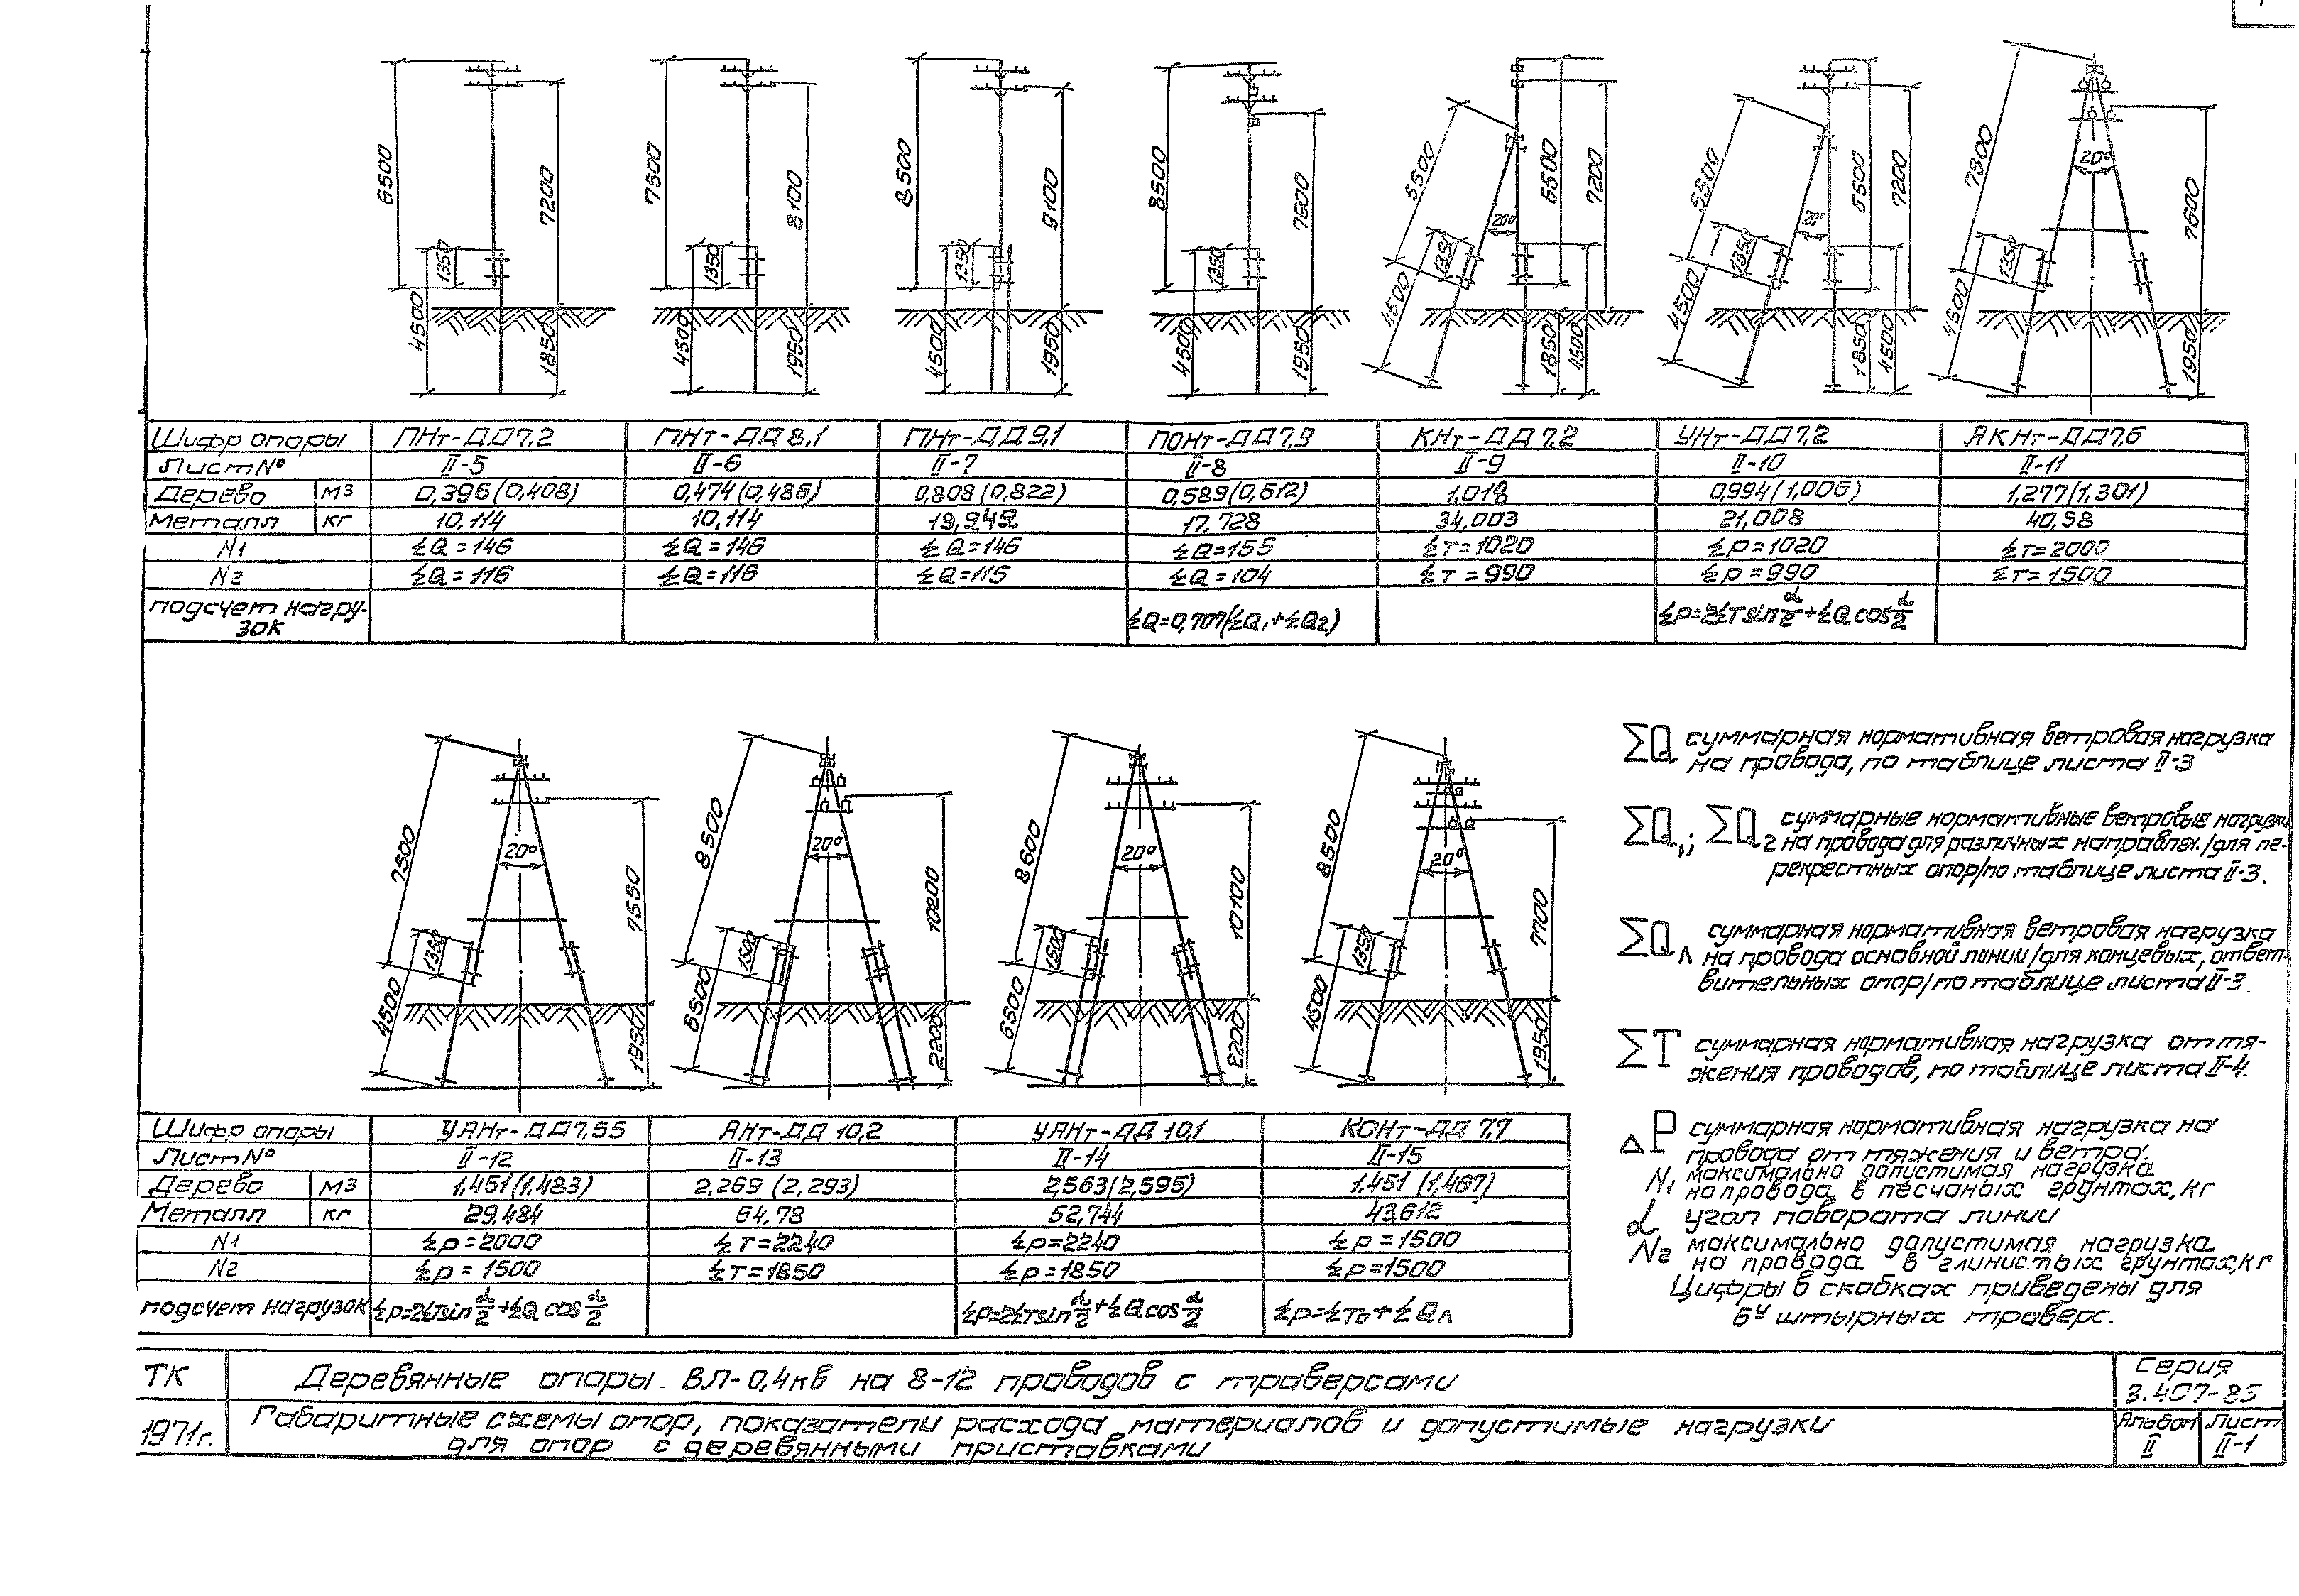 6500 7200 1350 4500 1850
7500 8100 1350 4500 1950
8500 9100 1350 4500 1950
8500 7900 1350 4500 1950
5500 6500 7200 20° 1350 4500 1850 4500
5500 6500 7200 20° 1350 4500 1850 4500
7500 7600 20° 1350 4500 1950
Шифр опоры ПНт-ДД7,2 ПНт-ДД8,1 ПНт-ДД9,1 ПОНт-ДД7,9 КНт-ДД7,2 УНт-ДД7,2 АКНт-ДД7,6
Лист № II-5 II-6 II-7 II-8 II-9 II-10 II-11
Дерево м3 0,396(0,408) 0,474(0,486) 0,808(0,822) 0,589(0,612) 1,018 0,994(1,006) 1,277(1,301)
Металл кг 10,114 10,114 19,942 17,728 34,003 21,008 40,58
N1 ΣQ=146 ΣQ=146 ΣQ=146 ΣQ=155 ΣT=1020 ΣP=1020 ΣT=2000
N2 ΣQ=116 ΣQ=116 ΣQ=115 ΣQ=104 ΣT=990 ΣP=990 ΣT=1500
подсчет нагру-
зок ΣQ=0,707(ΣQ1+ΣQ2) ΣP=2ΣTsin α/2+ΣQ cos α/2
7500 7550 20° 1350 4500 1950
8500 10200 20° 1500 6500 2200
8500 10100 20° 1500 6500 2200
8500 7700 20° 1350 4500 1950
Шифр опоры УАНт-ДД7,55 АНт-ДД 10,2 УАНт-ДД 10,1 КОНт-ДД 7,7
Лист № II-12 II-13 II-14 II-15
Дерево м3 1,451(1,483) 2,269 (2,293) 2,563(2,595) 1,451 (1,467)
Металл кг 29,484 64,78 52,744 43,612
N1 ΣP=2000 ΣT=2240 ΣP=2240 ΣP=1500
N2 ΣP=1500 ΣT=1850 ΣP=1850 ΣP=1500
подсчет нагрузок ΣP=2ΣTsin α/2+ΣQ cos α/2 ΣP=2ΣTsin α/2+ΣQ cos α/2 ΣP=ΣTо+ΣQл
ΣQ суммарная нормативная ветровая нагрузка
на провода, по таблице листа II-3
ΣQ1; ΣQ2 суммарные нормативные ветровые нагрузки
на провода для различных направлен. /для пе-
рекрестных опор/по таблице листа II-3.
ΣQл суммарная нормативная ветровая нагрузка
на провода основной линии /для концевых, ответ-
вительных опор/по таблице листа II-3.
ΣT суммарная нормативная нагрузка от тя-
жения проводов, по таблице листа II-4.
ΔP суммарная нормативная нагрузка на
провода от тяжения и ветра.
N1 максимально допустимая нагрузка
на провода в песчаных грунтах, кг
α угол поворота линии
N2 максимально допустимая нагрузка
на провода в глинистых грунтах, кг
Цифры в скобках приведены для
6и штырных траверс.
ТК Деревянные опоры ВЛ-0,4кв на 8-12 проводов с траверсами Серия
3.407-85
1971г. Габаритные схемы опор, показатели расхода материалов и допустимые нагрузки
для опор с деревянными приставками
Альбом Лист
II II-1